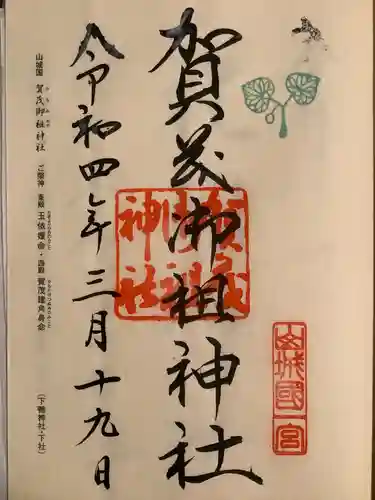 山城國
一宮
賀茂御祖神社
賀茂御祖神社
令和四年三月十九日
山城国 賀茂御祖神社 ご祭神 東殿 玉依媛命・西殿 賀茂建角身命 (下鴨神社・下社)